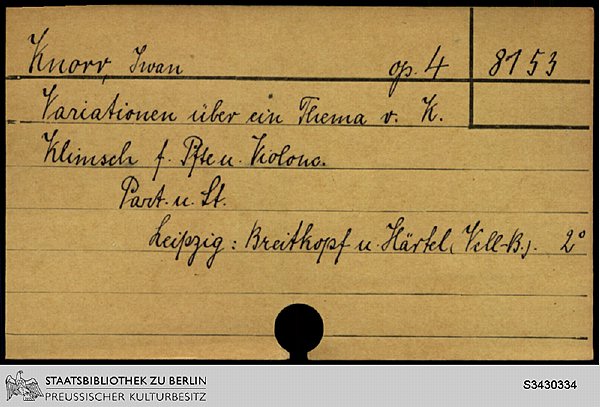 Knorr, Iwan op. 4 8153
Variationen über ein Thema v. K.
Klimsch f. Pfte u. Violonc.
Part. u. St.
Leipzig: Breitkopf u. Härtel (Vell-B.). 2°
STAATSBIBLIOTHEK ZU BERLIN
PREUSSISCHER KULTURBESITZ
S3430334